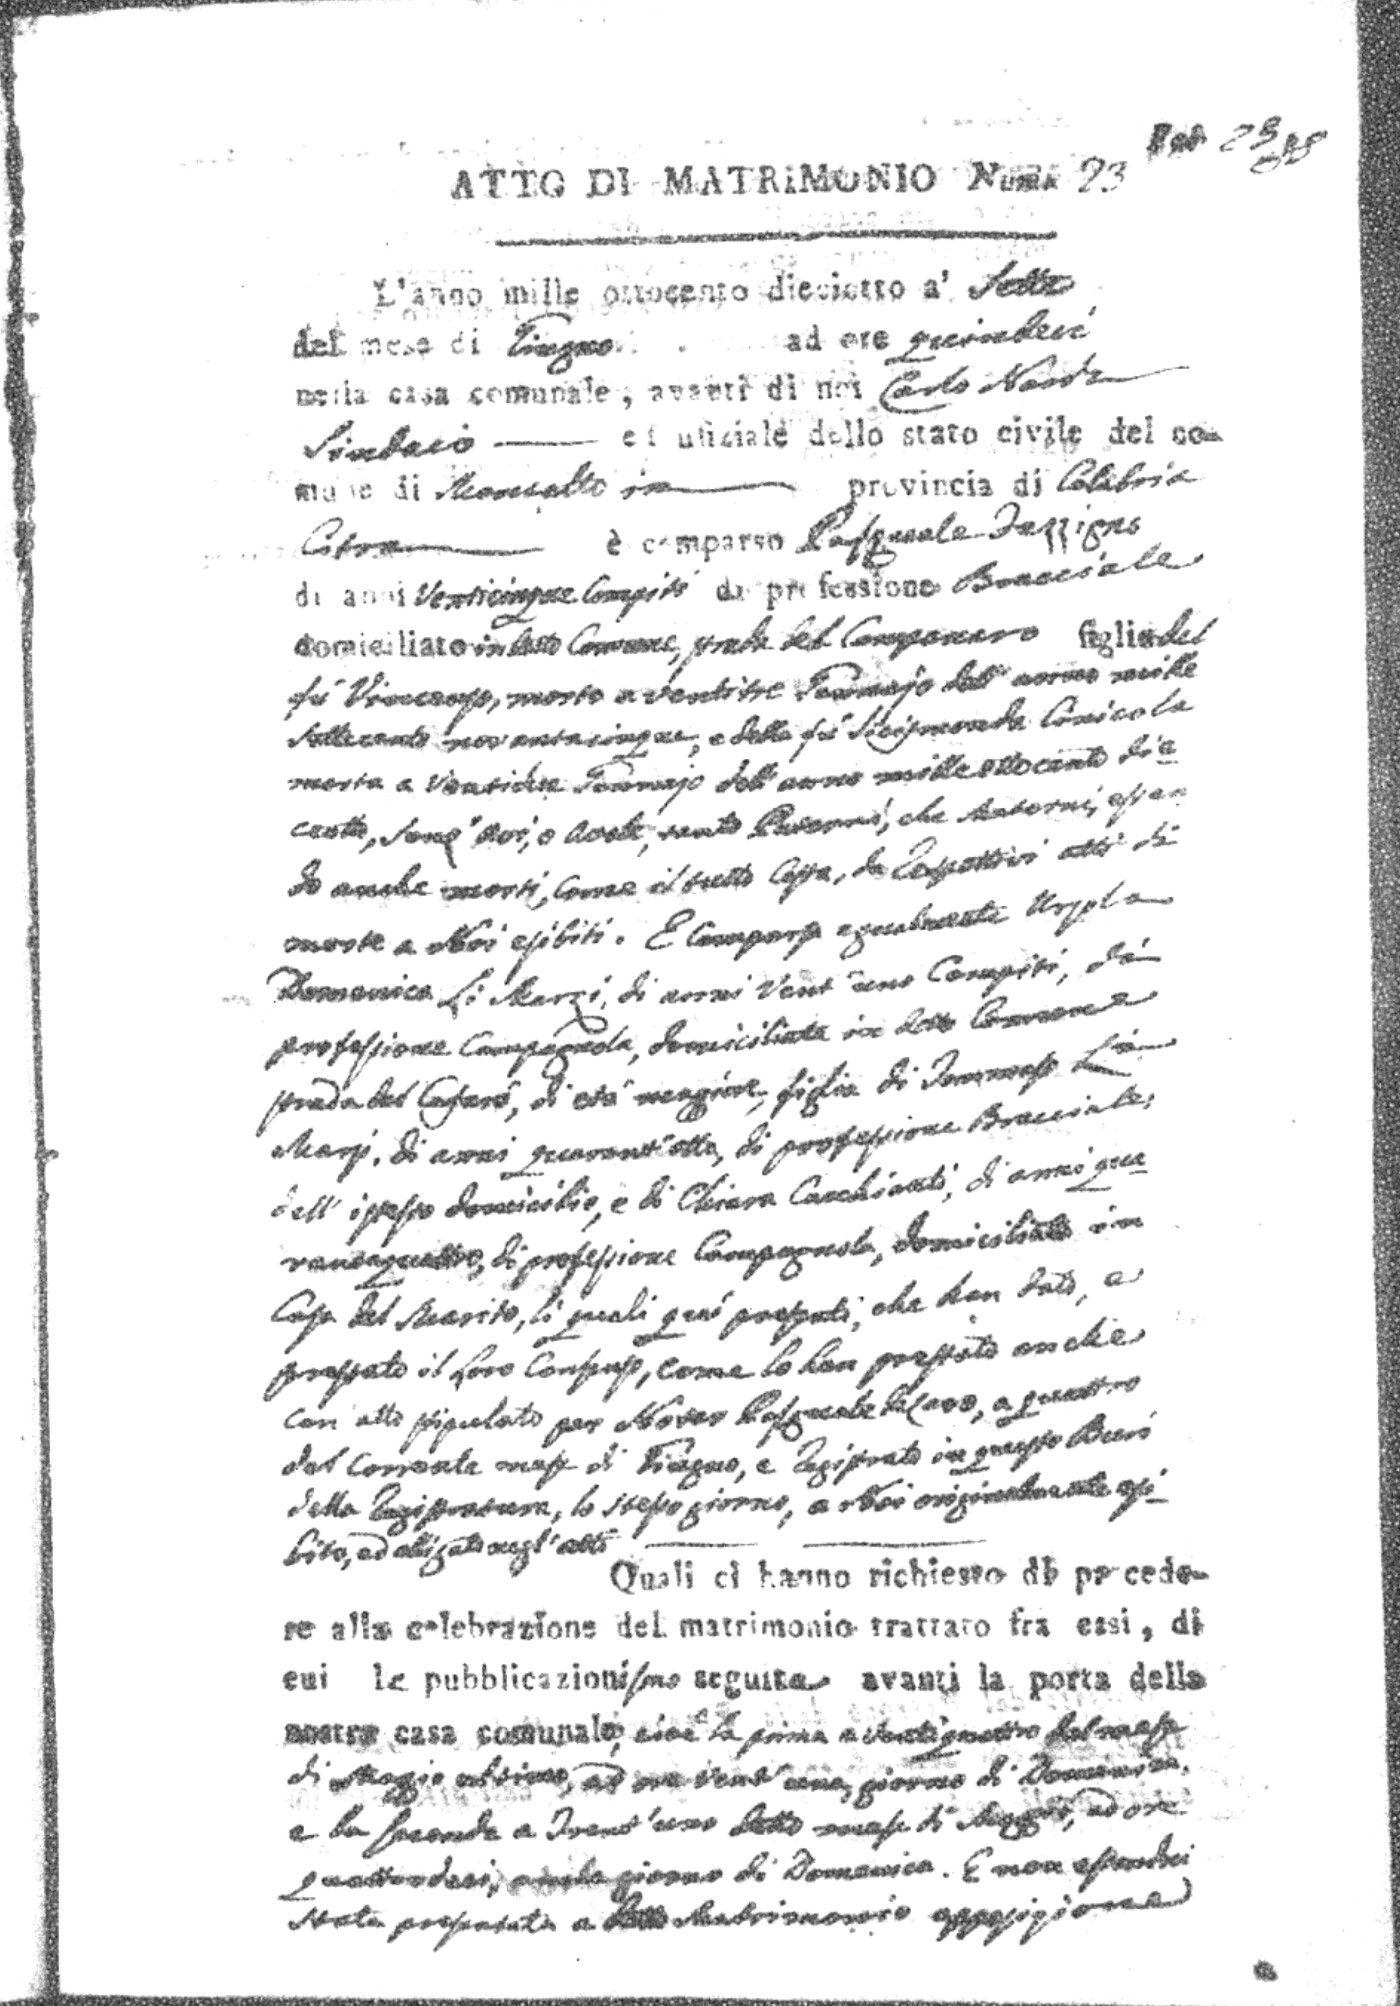 ATTO DI MATRIMONIO Num. 23
L'anno mille ottocento dieciotto a' Sette
del mese di Giugno ad ore quindeci
nella casa comunale, avanti di noi Carlo Nardi
Sindaco ed ufiziale dello stato civile del co-
mune di Montalto in provincia di Calabria
Citra è comparso Pasquale
di anni Venticinque Compiti di professione Bracciale
domiciliato in detto Comune, strada del Campanaro figlio del
fù Vincenzo, morto a ventitre Gennajo dell' anno mille
settecento novantacinque, e della fù Sicismonda Conicola
morta a Ventidue Gennajo dell' anno mille ottocento die=
ciotto, senz' Avi, o Avole, tanto Paterni, che Materni, essen
do anche morti, come il tutto Costa, da respettivi atti di
morte a Noi esibiti. E Comparsa egualmente Ursola
Domenica Li Marzi, di anni Vent' uno Compiti, di
professione Campagnola, domiciliata in detto Comune
strada del Cafaro, di età magiore, figlia di Tommaso Li
Marzi, di anni quarant'otto, di professione Bracciale,
dell' istesso domicilio, e di Chiara Cacchianti, di anni qua=
rantaquattro, di professione Campagnola, domiciliata in
Casa del Marito, li quali qui presenti, che han dato, e
prestato il loro Consenso, come lo han prestato anche
con atto stipulato per Notar Pasquale a quattro
del Corrente mese di Giugno, e registrato in questo Burò
della Registratura, lo stesso giorno, a Noi originalmente esi=
bito, ed alligato negl' atti
Quali ci hanno richiesto di procede-
re alla celebrazione del matrimonio trattato fra essi, di
cui le pubblicazioni sono seguite avanti la porta della
nostra casa comunale, cioè la prima a ventiquattro del mese
di Maggio ultimo, ad ore vent' una, giorno di Domenica,
e la seconda a Trent'uno detto mese di Maggio, ad ore
quattordeci, anche giorno di Domenica. E non essendoci
stata presentata a detto Matrimonio opposizione